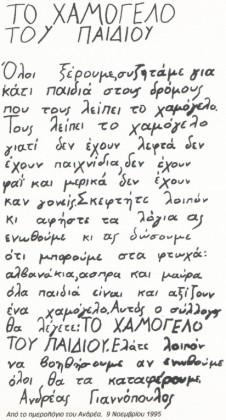 ΤΟ ΧΑΜΟΓΕΛΟ
ΤΟΥ ΠΑΙΔΙΟΥ
Όλοι ξέρουμε,συζητάμε για
κάτι παιδιά στους δρόμους
που τους λείπει το χαμόγελο.
Τους λείπει το χαμόγελο
γιατί δεν έχουν λεφτά δεν
έχουν παιχνίδια,δεν έχουν
φαΐ και μερικά δεν έχουν
καν γονείς.Σκεφτήτε λοιπόν
κι αφήστε τα λόγια ας
ενωθούμε κι ας δώσουμε
ότι μπορούμε στα φτωχά:
αλβανάκια,άσπρα και μαύρα
όλα παιδιά είναι και αξίζουν
ένα χαμόγελο.Αυτός ο σύλλογος
θα λέγετε:ΤΟ ΧΑΜΟΓΕΛΟ
ΤΟΥ ΠΑΙΔΙΟΥ.Ελάτε λοιπόν
να βοηθήσουμε αν ενωθούμε
όλοι θα τα καταφέρουμε.
Ανδρέας Γιαννόπουλος
Από το ημερολόγιο του Ανδρέα, 9 Νοεμβρίου 1995